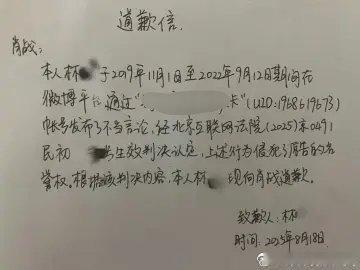 道歉信.
肖战:
本人林 于2019年11月1日至2022年9月12日期间在
微博平台通过" 卡"(UID:1968619673)
帐号发布了不当言论,经北京互联网法院(2025)京0491
民初 号生效判决认定,上述行为侵犯了原告的名
誉权。根据该判决内容,本人林 现向肖战道歉。
致歉人:林
时间:2025年8月18日.